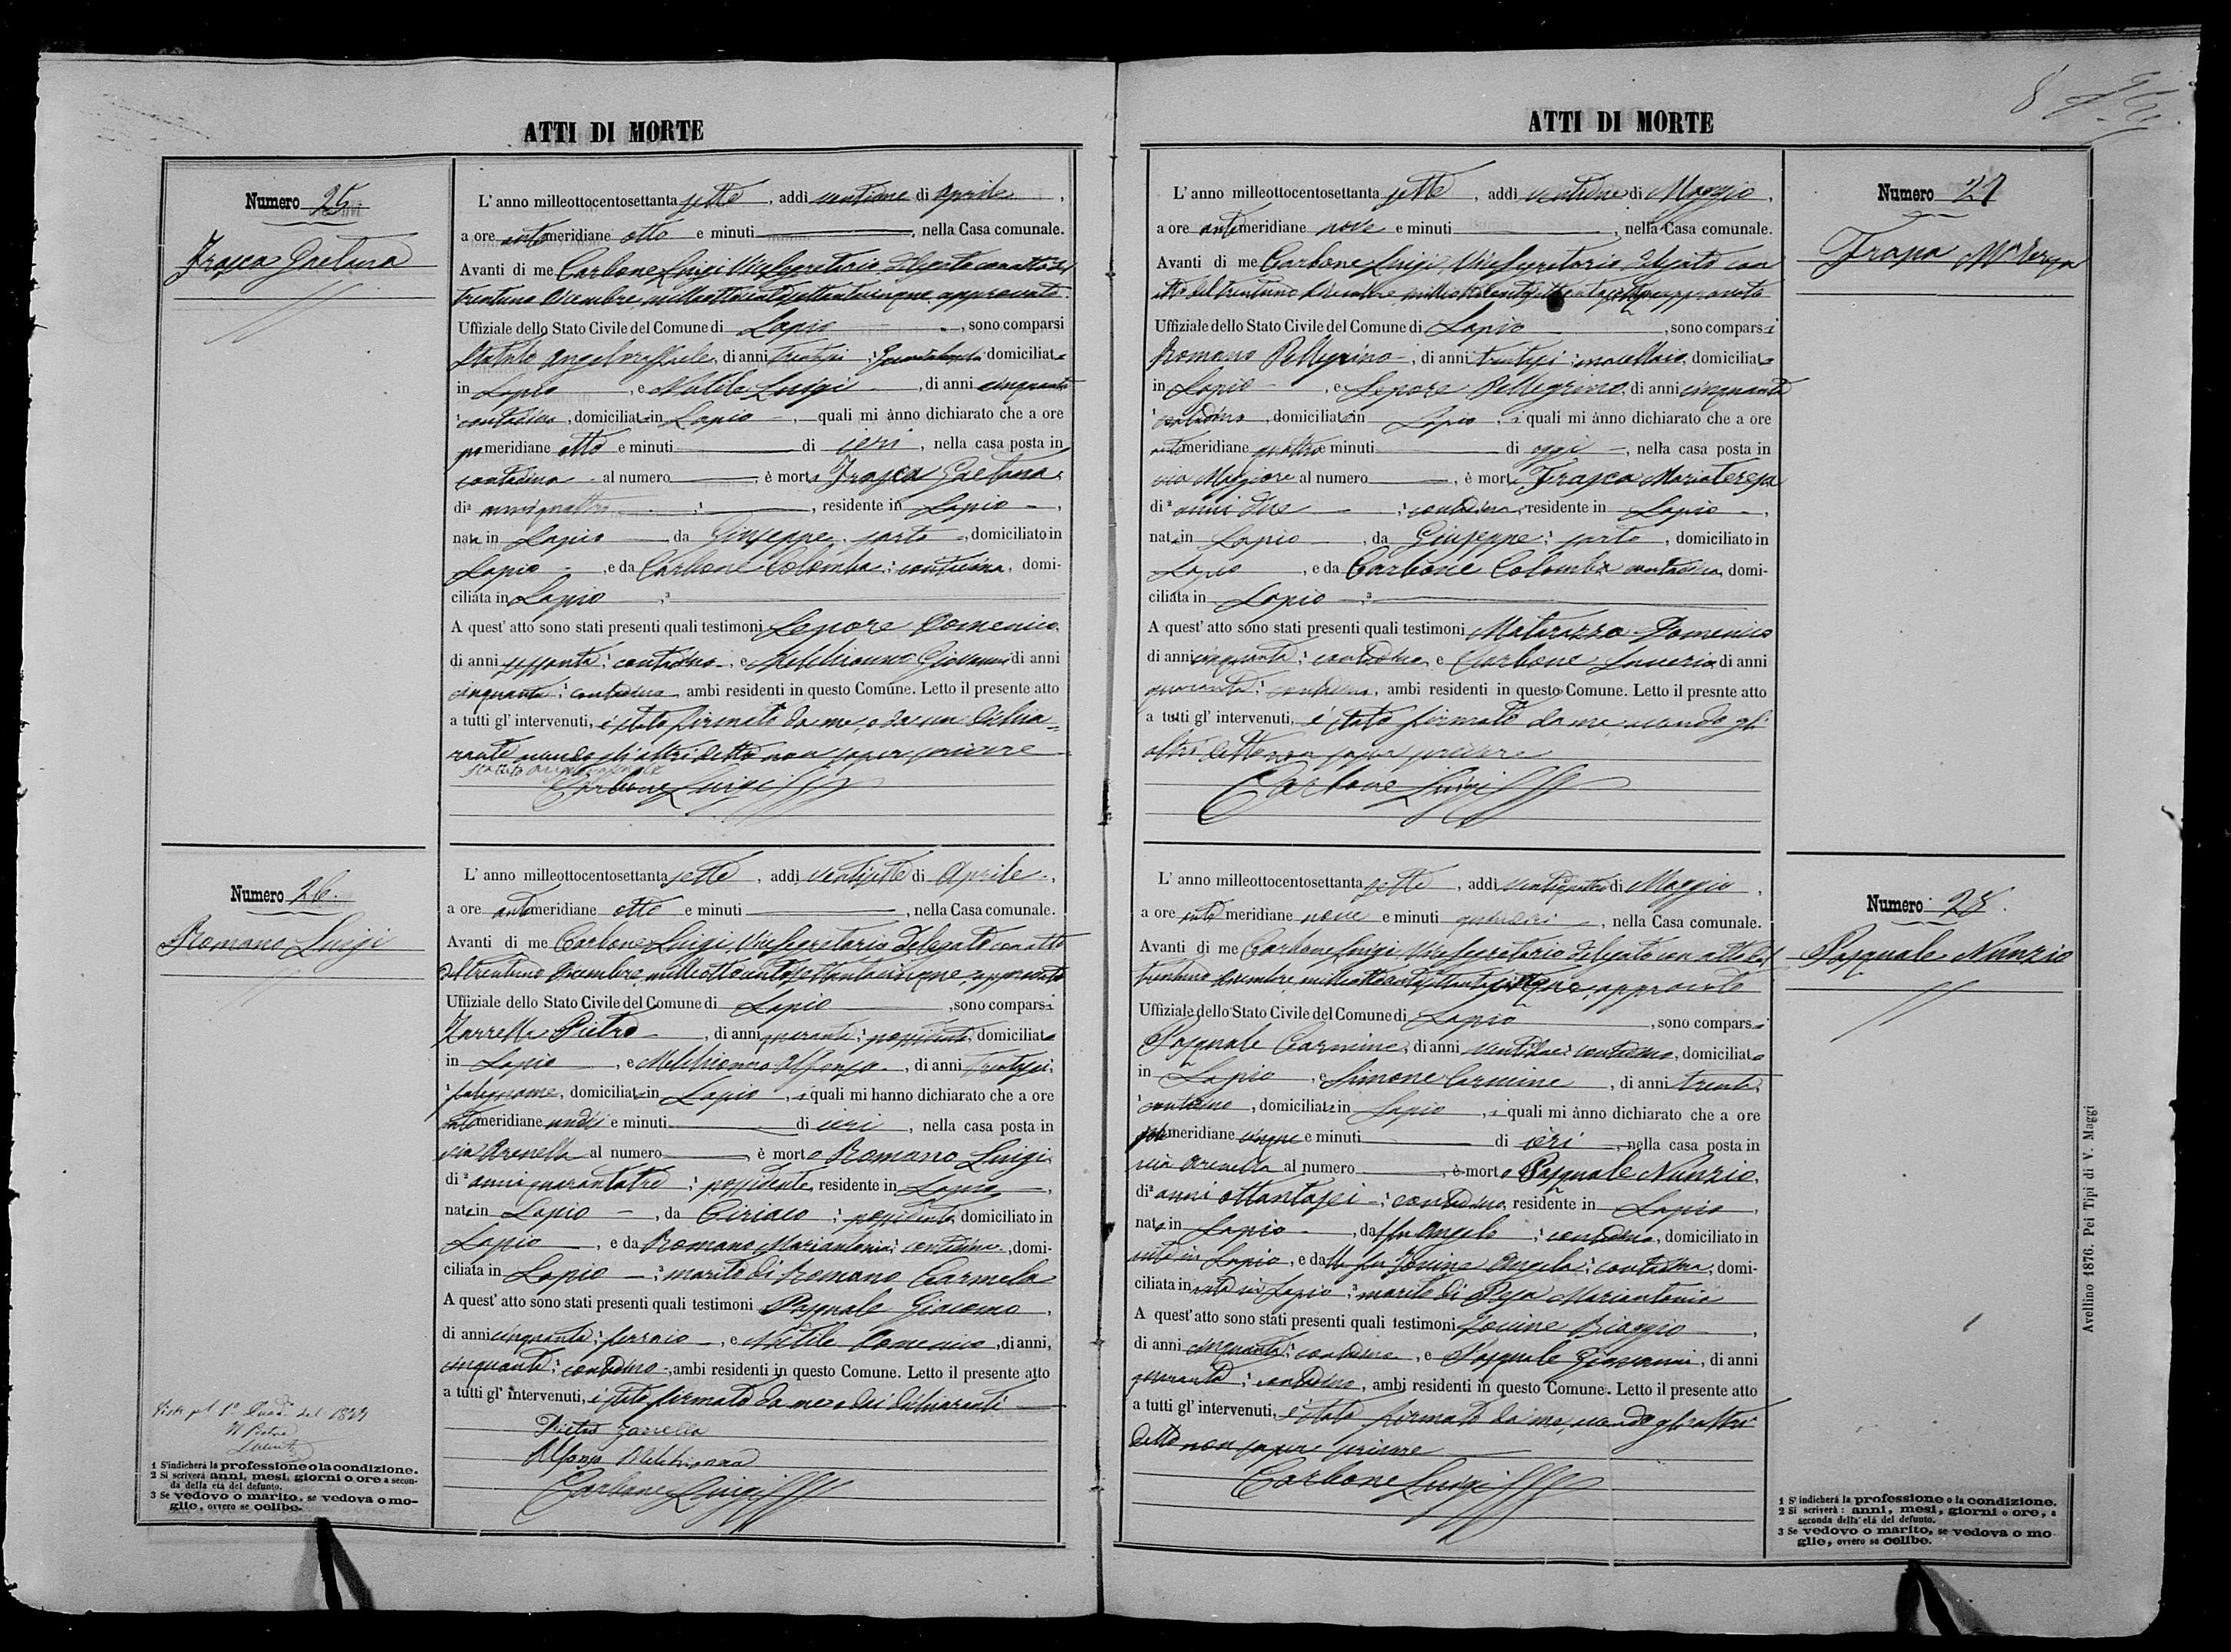 ATTI DI MORTE
Numero 25
Frasca Gaetana
L' anno milleottocentosettanta sette, addì ventinove di Aprile,
a ore antimeridiane otto e minuti, nella Casa comunale.
Avanti di me Carbone Luigi Vice Segretario delegato con atto del
trentuno Dicembre milleottocentosettantacinque approvato
Uffiziale dello Stato Civile del Comune di Lapio, sono comparsi
Statuto Angelo raffaele, di anni trentasei; domiciliato
in Lapio, e Natile Luigi, di anni cinquanta
contadino, domiciliato in Lapio, quali mi ànno dichiarato che a ore
pomeridiane otto e minuti di ieri, nella casa posta in
contadina al numero, è morta Frasca Gaetana
di anni quattro, residente in Lapio,
nata in Lapio da Giuseppe sarto, domiciliato in
Lapio, e da Carbone Colomba; contadina, domi-
ciliata in Lapio
A quest' atto sono stati presenti quali testimoni Lepore Domenico
di anni sessanta; contadino, e Melchionno Giovanni di anni
cinquanta; contadino, ambi residenti in questo Comune. Letto il presente atto
a tutti gl' intervenuti, è stato firmato da me, e da un dichia-
rante avendo gli altri detto non saper scrivere
Statuto Angeloraffaele
Carbone Luigi
Numero 26.
Romano Luigi
L' anno milleottocentosettanta sette, addì ventisette di Aprile,
a ore antimeridiane otto e minuti, nella Casa comunale.
Avanti di me Carbone Luigi Vice Segretario delegato con atto
del trentuno Dicembre milleottocentosettantacinque, approvato
Uffiziale dello Stato Civile del Comune di Lapio, sono comparsi
Zarrella Pietro, di anni quaranta; possidente, domiciliato
in Lapio, e Melchionna Alfonso, di anni trentasei;
falegname, domiciliato in Lapio, i quali mi hanno dichiarato che a ore
antimeridiane undici e minuti di ieri, nella casa posta in
via Arenella al numero, è morto Romano Luigi
di anni quarantatre; possidente, residente in Lapio,
nato in Lapio, da Ciriaco; possidente, domiciliato in
Lapio, e da Romano Mariantonia; contadina, domi-
ciliata in Lapio; marito di Romano Carmela
A quest' atto sono stati presenti quali testimoni Pasquale Giacomo,
di anni cinquanta; ferraio, e Natile Domenico, di anni,
cinquanta; contadino, ambi residenti in questo Comune. Letto il presente atto
a tutti gl' intervenuti, è stato firmato da me e dai dichiaranti
Pietro Zarrella
Alfonso Melchionna
Carbone Luigi
1 S'indicherà la professione o la condizione.
2 Si scriverà anni, mesi, giorni o ore a secon-
da della età del defunto.
3 Se vedovo o marito, se vedova o mo-
glie, ovvero se celibe.
8
ATTI DI MORTE
Numero 27
Frasca Ma Teresa
L' anno milleottocentosettanta sette, addì ventidue di Maggio,
a ore antimeridiane nove e minuti, nella Casa comunale.
Avanti di me Carbone Luigi, Vice Segretario delegato con
atto del trentuno Dicembre milleottocentosettantacinque approvato
Uffiziale dello Stato Civile del Comune di Lapio, sono comparsi
Romano Pellegrino, di anni trentasei; macellaio, domiciliato
in Lapio, e Lepore Pellegrino, di anni cinquanta
contadino, domiciliato in Lapio, i quali mi ànno dichiarato che a ore
antimeridiane quattro e minuti di oggi, nella casa posta in
via Maggiore al numero, è morta Frasca Mariateresa
di anni due; contadina, residente in Lapio,
nata in Lapio, da Giuseppe; sarto, domiciliato in
Lapio, e da Carbone Colomba contadina, domi-
ciliata in Lapio
A quest' atto sono stati presenti quali testimoni Matarazzo Domenico
di anni cinquanta; contadino e Carbone Saverio di anni
quaranta; contadino, ambi residenti in questo Comune. Letto il presnte atto
a tutti gl' intervenuti, è stato firmato da me, avendo gli
altri detto non saper scrivere
Carbone Luigi
Numero 28.
Pasquale Nunzio
L' anno milleottocentosettanta sette, addì ventiquattro di Maggio,
a ore antimeridiane nove e minuti, nella Casa comunale.
Avanti di me Carbone Luigi, Vice Segretario delegato con atto del
trentuno Dicembre milleottocentosettantacinque, approvato
Uffiziale dello Stato Civile del Comune di Lapio, sono comparsi
Pasquale Carmine, di anni ventidue; contadino, domiciliato
in Lapio, e Simone Carmine, di anni trenta,
contadino, domiciliato in Lapio, i quali mi ànno dichiarato che a ore
pomeridiane cinque e minuti di ieri, nella casa posta in
via Arenella al numero, è morto Pasquale Nunzio,
di anni ottantasei; contadino, residente in Lapio,
nato in Lapio, da fu Angelo; contadino, domiciliato in
vita in Lapio, e da fu Iovine Angela; contadina, domi-
ciliata in vita in Lapio; marito di Resa Mariantonia
A quest' atto sono stati presenti quali testimoni Iovine Biaggio,
di anni cinquanta; contadino, e Pasquale Giovanni, di anni
quaranta; contadino, ambi residenti in questo Comune. Letto il presente atto
a tutti gl' intervenuti, è stato firmato da me, avendo gli altri
detto non saper scrivere
Carbone Luigi
1 S' indicherà la professione o la condizione.
2 Si scriverà: anni, mesi, giorni o ore, a
seconda della età del defunto.
3 Se vedovo o marito, se vedova o mo
glie, ovvero se celibe.
Avellino 1876. Pei Tipi di V. Maggi